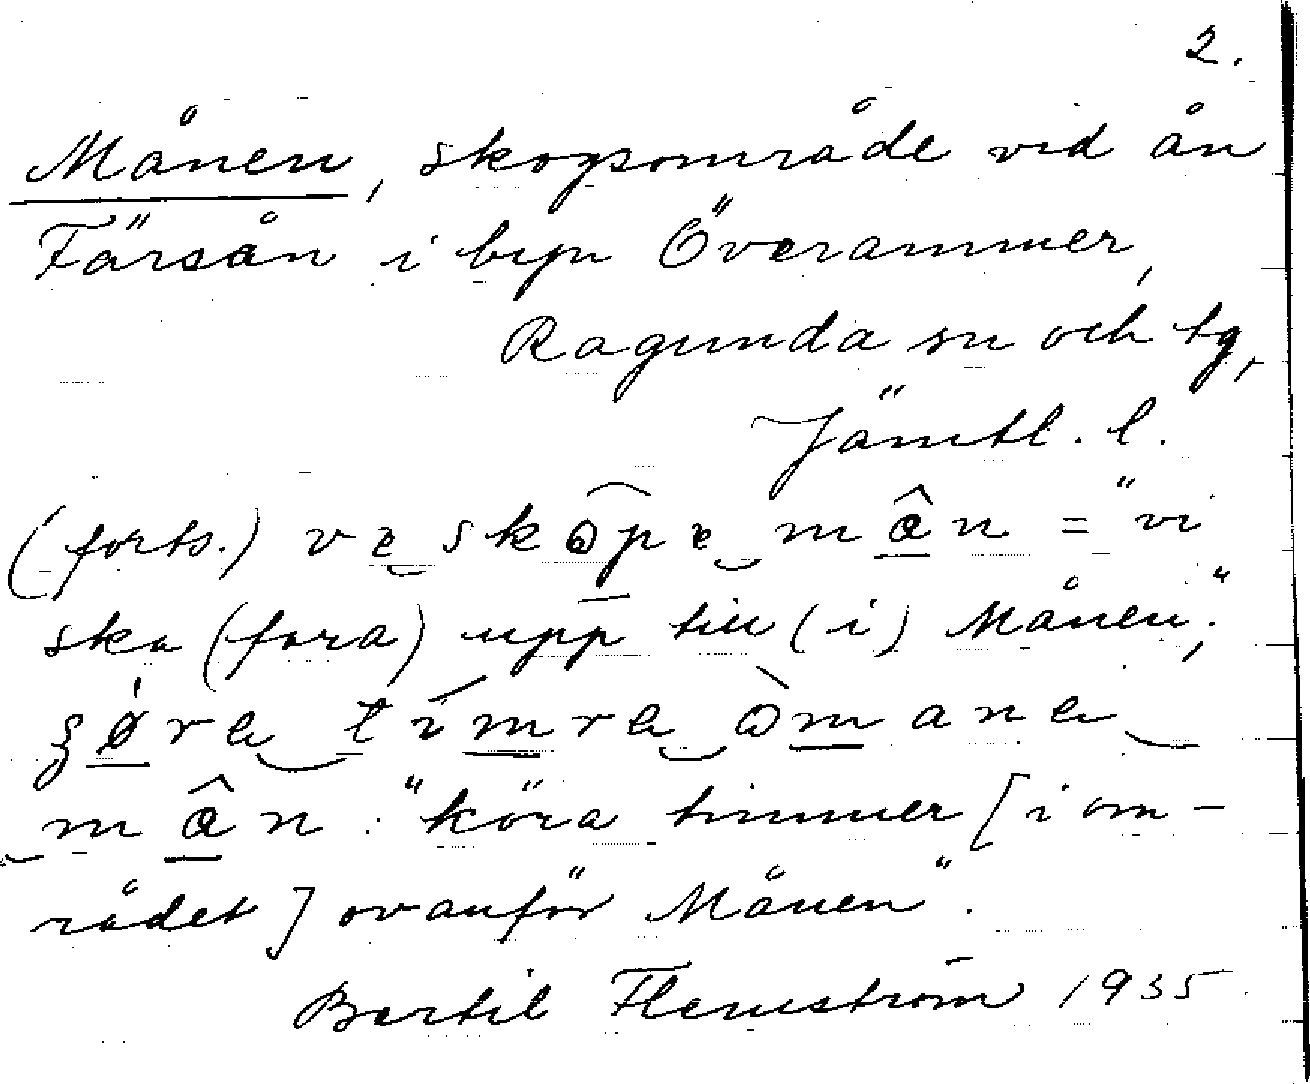 2.
Månen, skogsområde vid ån
Färsån i byn Överammer,
Ragunda sn och tg,
Jämtl. l.
(forts.) ve skôpe mân = "vi
ska (fara) upp till (i) Månen";
timra òmana
mân : "köra timmer [i om-
rådet] ovanför Månen".
Bertil Flemström 1935